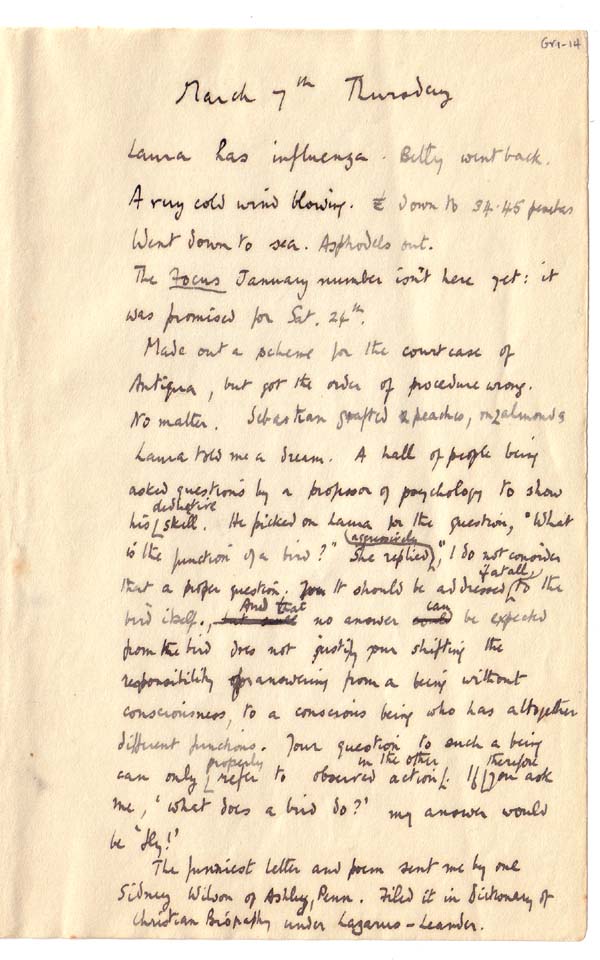 Gr1-14
March 7th Thursday
Laura has influenza. Betty went back.
A very cold wind blowing. £ down to 34.45 pesetas
Went down to sea. Asphodels out.
The Focus January number isn't here yet: it
was promised for Sat. 24th.
Made out a scheme for the court case of
Antigua, but got the order of procedure wrong.
No matter. Sebastian grafted 2 peaches, on 2 almonds
Laura told me a dream. A hall of people being
asked questions by a professor of psychology to show
deductive
his skill. He picked on Laura for the question, "What
aggressively
is the function of a bird?" She replied, "I do not consider
if at all,
that a proper question. You It should be addressed to the
And that can
bird itself, but such no answer could be expected
from the bird does not justify your shifting the
responsibility of answering from a being without
consciousness, to a conscious being who has altogether
different functions. Your question to such a being
properly in the other therefore
can only refer to observed action. If you ask
me, 'what does a bird do?' my answer would
be 'fly!'
The funniest letter and poem sent me by one
Sidney Wilson of Ashley, Penn. Filed it in Dictionary of
Christian Biography under Lazarus - Leander.